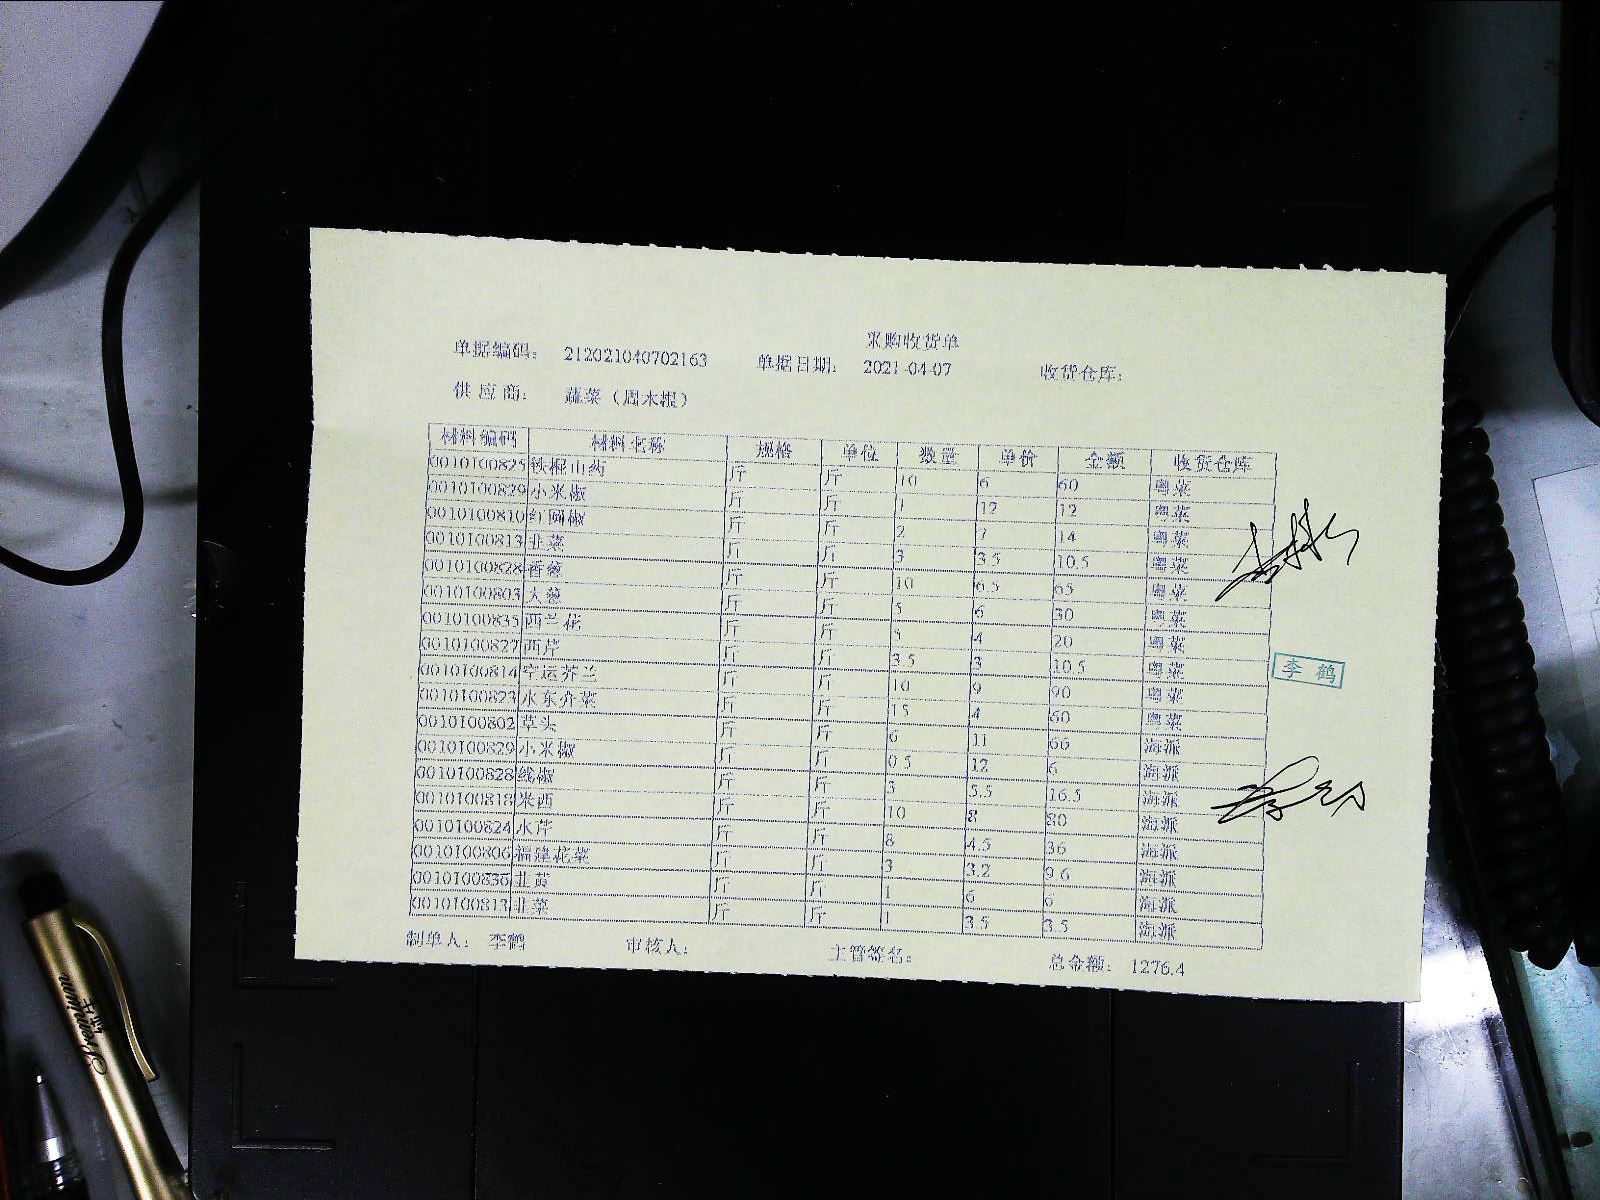 采购收货单
单据编码： 212021040702163 单据日期： 2021-04-07 收货仓库：
供 应 商： 蔬菜（周木根）
材料编码 材料名称 规格 单位 数量 单价 金额 收货仓库
0010100825 铁棍山药 斤 斤 10 6 60 粤菜
0010100829 小米椒 斤 斤 1 12 12 粤菜
0010100810 红圆椒 斤 斤 2 7 14 粤菜
0010100813 韭菜 斤 斤 3 3.5 10.5 粤菜
0010100828 香葱 斤 斤 10 6.5 65 粤菜
0010100803 大葱 斤 斤 5 6 30 粤菜
0010100835 西兰花 斤 斤 4 20 粤菜
0010100827 西芹 斤 斤 3.5 3 10.5 粤菜
0010100814 空运芥兰 斤 斤 10 9 90 粤菜
0010100823 水东介菜 斤 斤 15 4 60 粤菜
0010100802 草头 斤 斤 6 11 66 海派
0010100829 小米椒 斤 斤 0.5 12 6 海派
0010100828 线椒 斤 斤 3 5.5 16.5 海派
0010100818 米西 斤 斤 10 8 80 海派
0010100824 水芹 斤 斤 8 4.5 36 海派
0010100806 福建花菜 斤 斤 3 3.2 9.6 海派
0010100836 韭黄 斤 斤 1 6 6 海派
0010100813 韭菜 斤 斤 1 3.5 3.5 海派
制单人： 李鹤 审核人： 主管签名： 总金额： 1276.4
李鹤